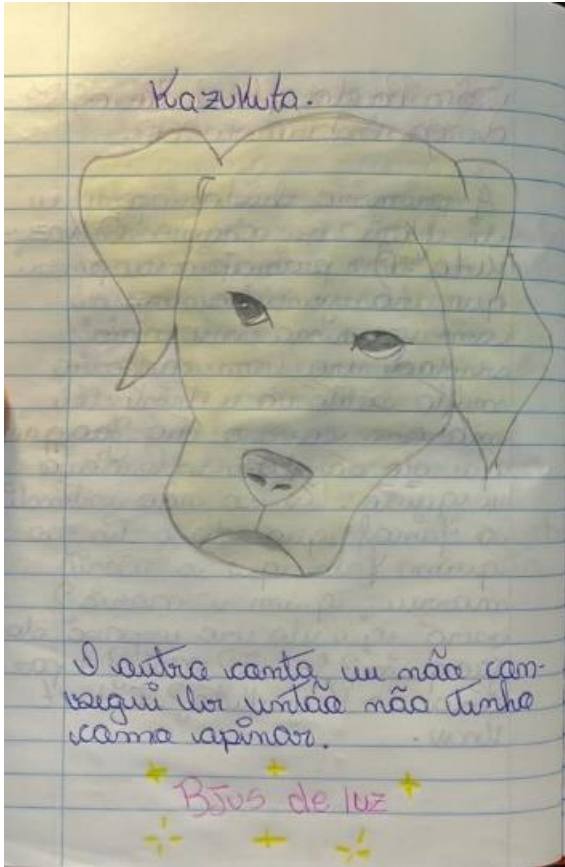 Kazukuta.
O outro conto, eu não con-
segui ler então não tenho
como opinar.
Bjus de luz